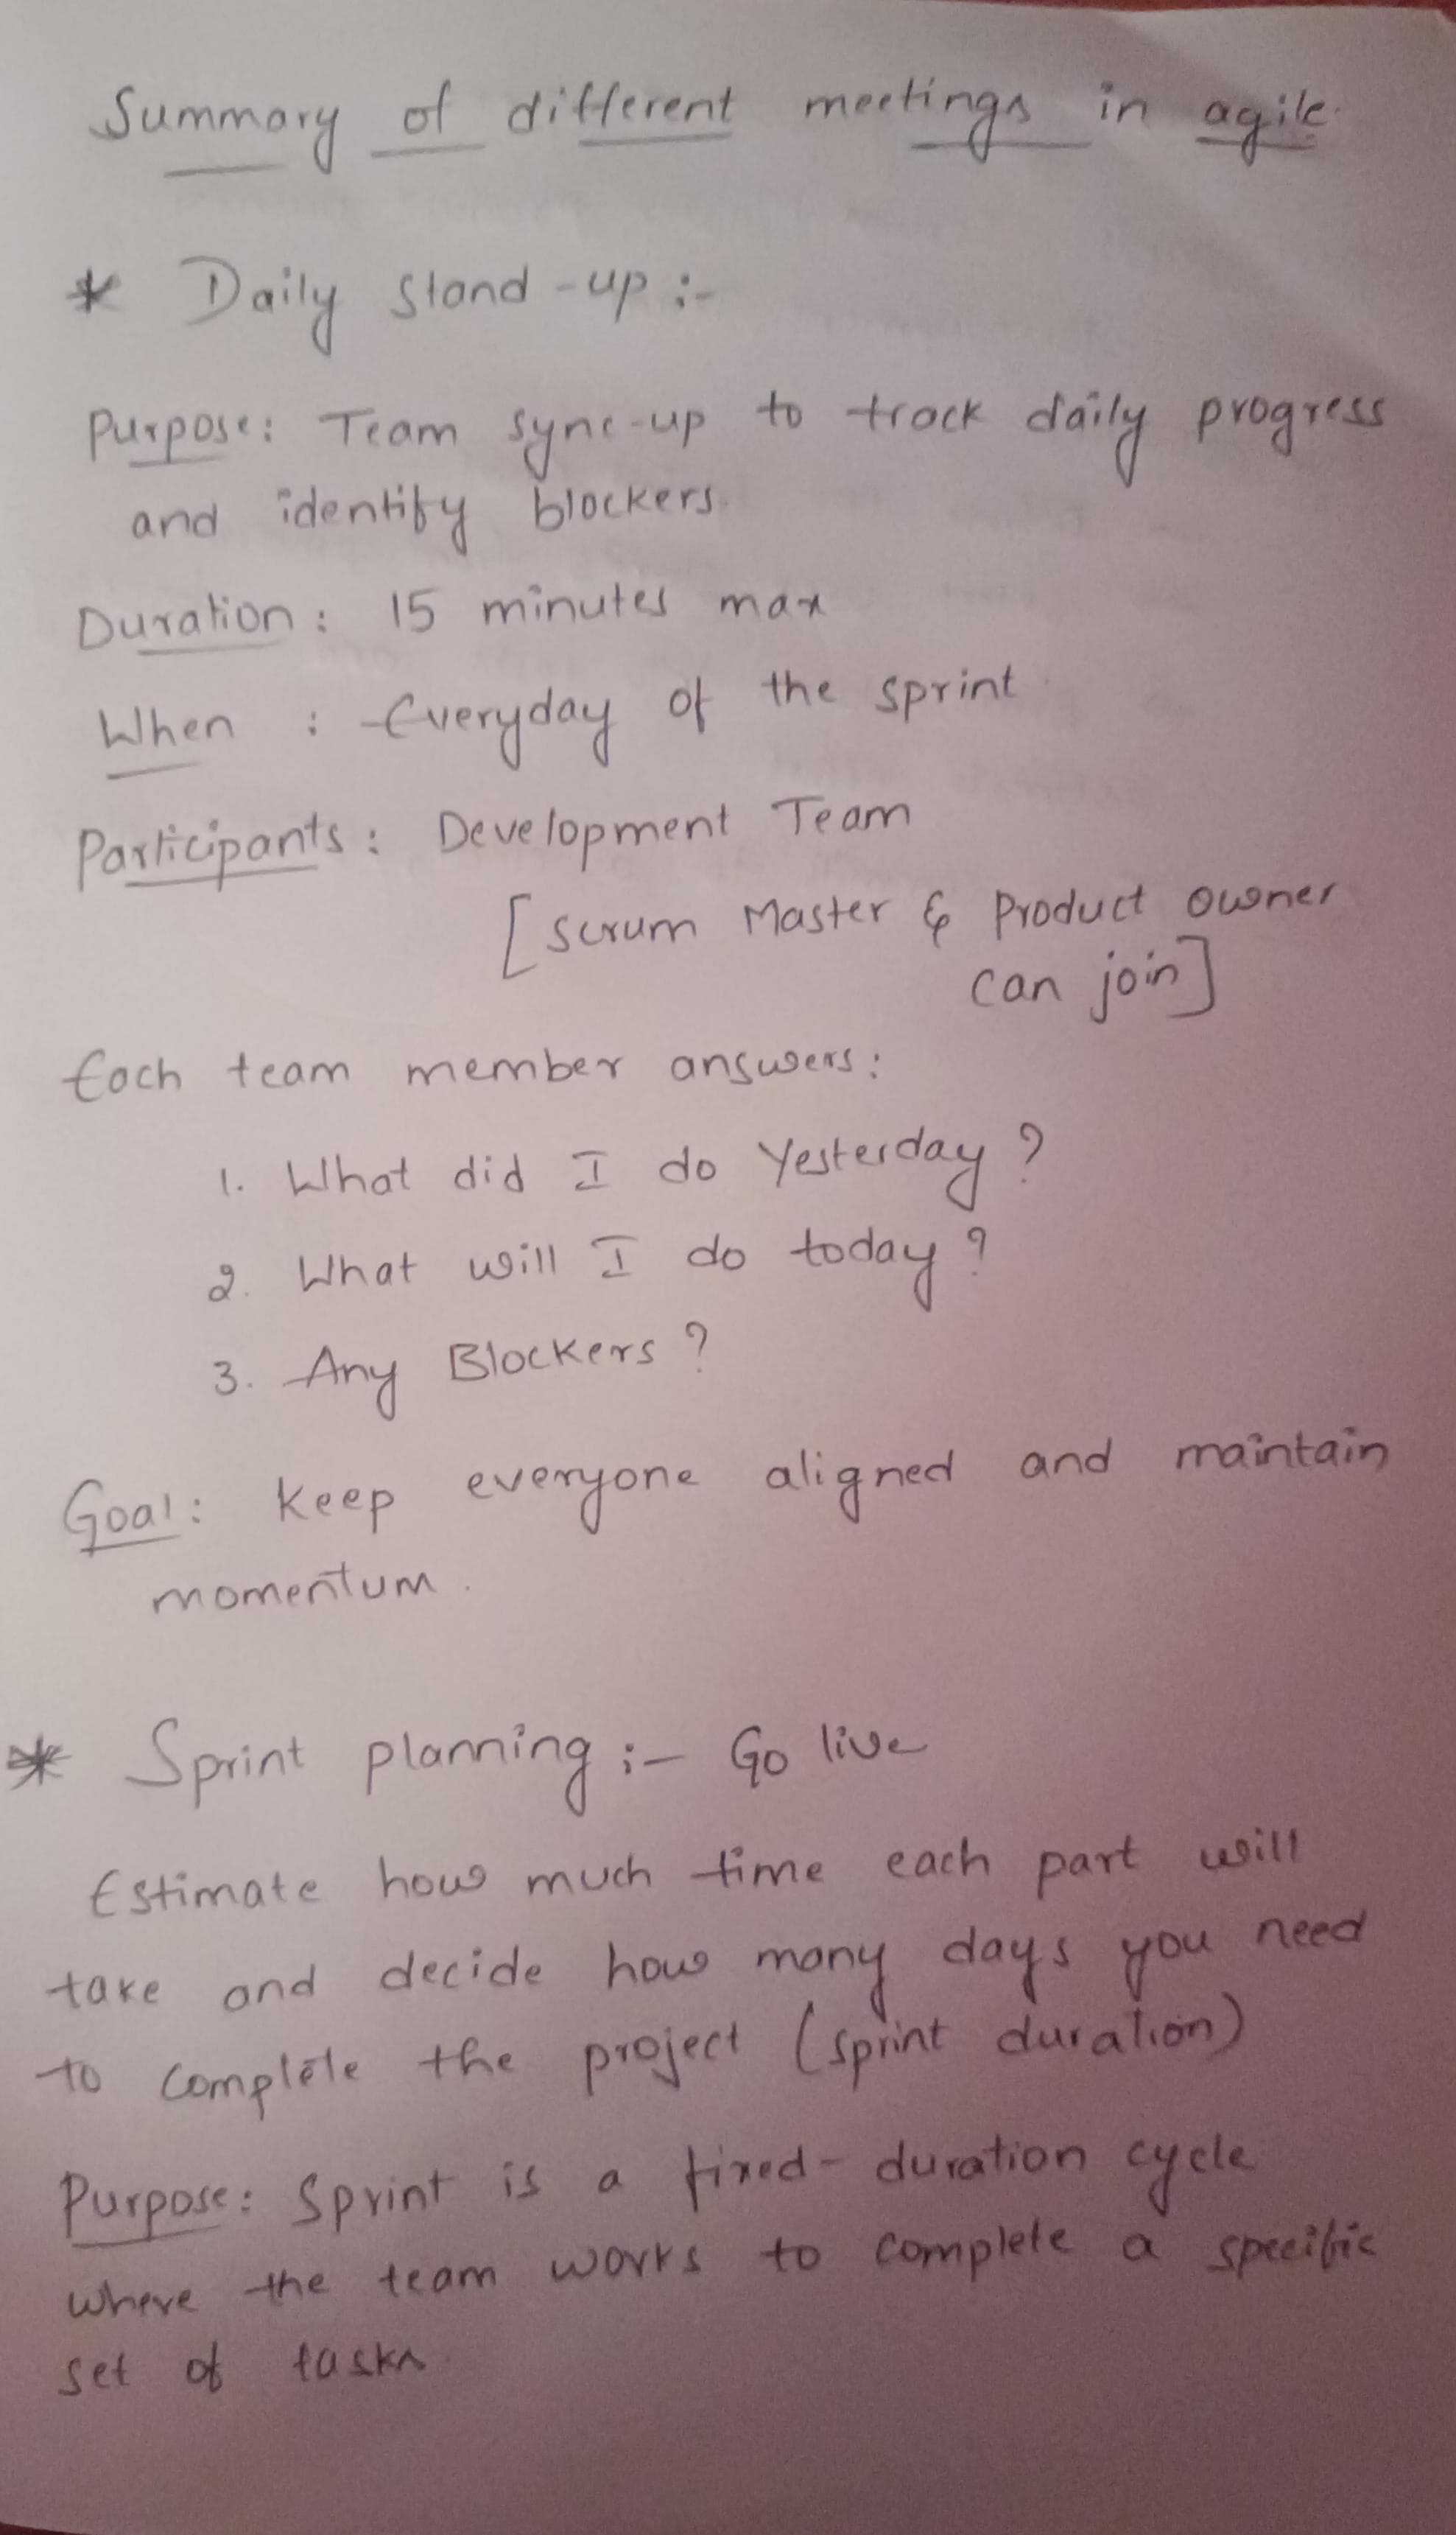 Summary of different meetings in agile.
* Daily stand-up :-
Purpose: Team sync-up to track daily progress
and identify blockers.
Duration: 15 minutes max
When : Everyday of the sprint
Participants: Development Team
[Scrum Master & Product owner
can join]
Each team member answers:
1. What did I do Yesterday?
2. What will I do today?
3. Any Blockers?
Goal: Keep everyone aligned and maintain
momentum.
* Sprint planning :- Go live
Estimate how much time each part will
take and decide how many days you need
to complete the project (sprint duration)
Purpose: Sprint is a fixed-duration cycle
where the team works to complete a specific
set of tasks